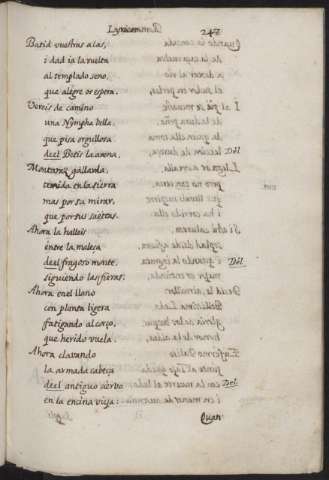 247
Batid vuestras alas,
i dad ia la vuelta
al templado seno,
que alegre os espera.
Vereis de camino
una Nympha bella,
que pisa orgullosa
del Betis la arena.
Montaraz gallarda,
temida en la sierra
mas por su mirar,
que por sus saetas.
Ahora la halleis
entre la maleza
del fragoso monte,
siguiendo las fieras:
Ahora en el llano
con planta ligera
fatigando al corço,
que herido vuela:
Ahora clavando
la armada cabeça
del antiguo ciervo
en la encina vieja:
Quan